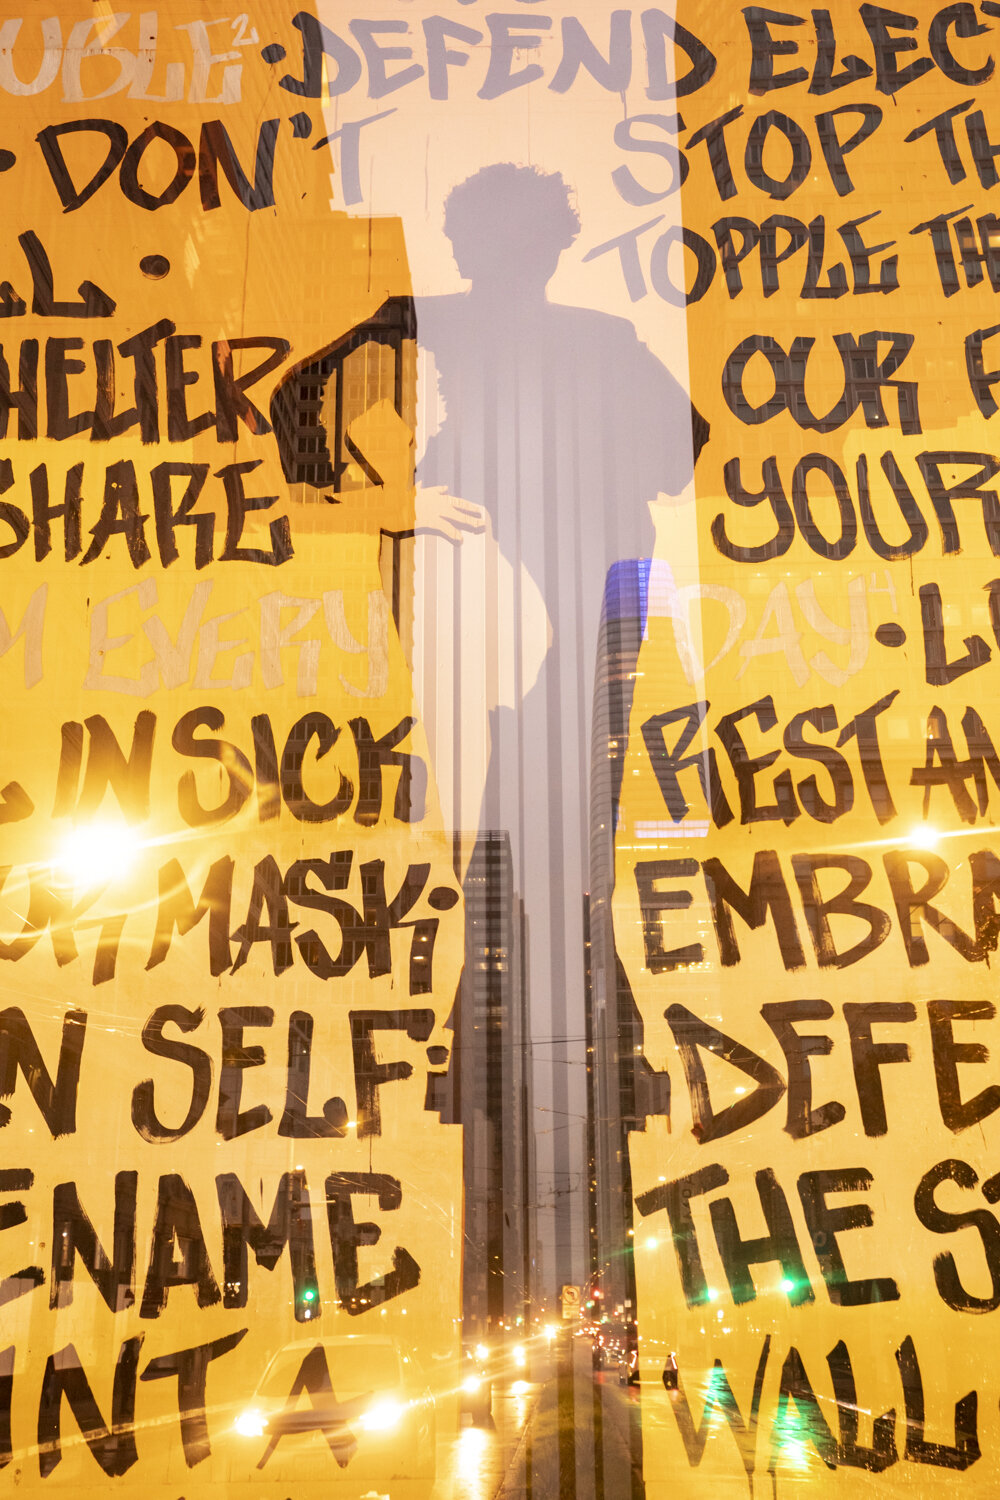 UBLE² • DEFEND ELEC
• DON'T STOP TH
LL • TOPPLE THE
HELTER OUR
SHARE YOUR
M EVERY DAY⁴ • L
IN SICK REST AN
OUR MASK • EMBRA
N SELF • DEFE
ENAME THE S
INT A WALL